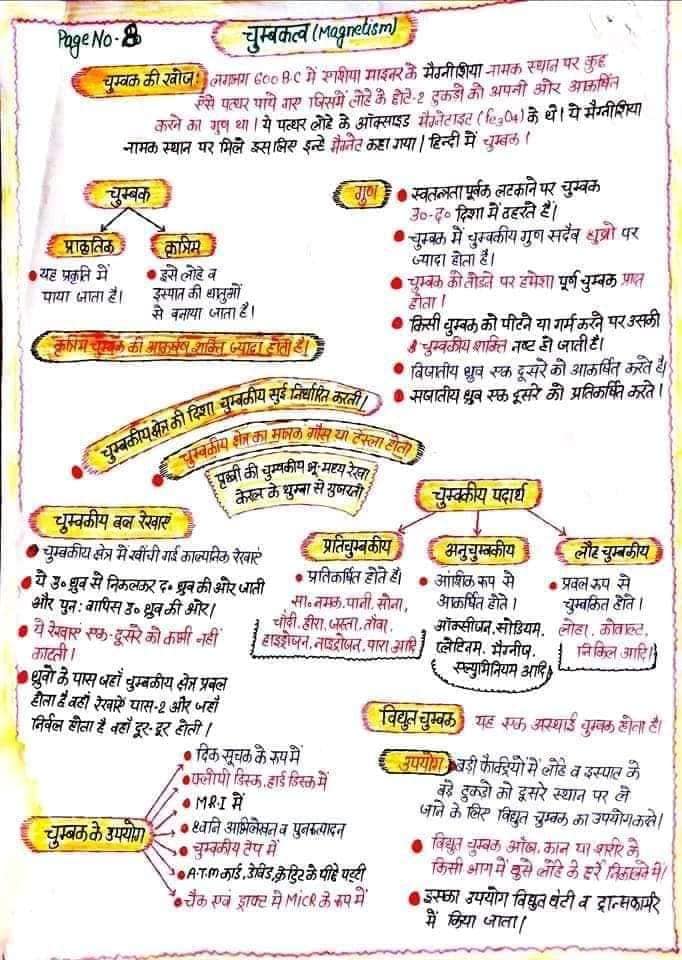 Page No - 8
चुम्बकत्व (Magnetism)
चुम्बक की खोज: लगभग 600 B.C में एशिया माइनर के मैग्नीशिया नामक स्थान पर कुछ
ऐसे पत्थर पाये गए जिसमें लोहे के छोटे-2 टुकडो को अपनी ओर आकर्षित
करने का गुण था। ये पत्थर लोहे के ऑक्साइड मैग्नेटाइट (Fe3O4) के थे। ये मैग्नीशिया
नामक स्थान पर मिले इसलिए इन्हे मैग्नेट कहा गया। हिन्दी में चुम्बक।
चुम्बक
प्राकृतिक
यह प्रकृति में
पाया जाता है।
कृत्रिम
इसे लोहे व
इस्पात की धातुओं
से बनाया जाता है।
कृत्रिम चुम्बक की आकर्षण शक्ति ज्यादा होती है।
गुण
स्वतन्त्रता पूर्वक लटकाने पर चुम्बक
उ०-द० दिशा में ठहरते हैं।
चुम्बक में चुम्बकीय गुण सदैव ध्रुवो पर
ज्यादा होता है।
चुम्बक को तोडने पर हमेशा पूर्ण चुम्बक प्राप्त
होता।
किसी चुम्बक को पीटने या गर्म करने पर उसकी
चुम्बकीय शक्ति नष्ट हो जाती है।
विजातीय ध्रुव एक दूसरे को आकर्षित करते है।
सजातीय ध्रुव एक दूसरे को प्रतिकर्षित करते।
चुम्बकीय क्षेत्र की दिशा चुम्बकीय सुई निर्धारित करती।
चुम्बकीय क्षेत्र का मात्रक गौस या टेस्ला होती
पृथ्वी की चुम्बकीय भू-मध्य रेखा
केरल के थुम्बा से गुजरती
चुम्बकीय बल रेखाएं
चुम्बकीय क्षेत्र में खींची गई काल्पनिक रेखाएं
ये उ० ध्रुव से निकलकर द० ध्रुव की ओर जाती
और पुन: वापिस उ० ध्रुव की ओर।
ये रेखाएं एक-दूसरे को कभी नहीं
काटती।
ध्रुवो के पास जहाँ चुम्बकीय क्षेत्र प्रबल
होता है वहाँ रेखाएं पास-2 और जहाँ
निर्बल होता है वहाँ दूर-दूर होती।
चुम्बकीय पदार्थ
प्रतिचुम्बकीय
प्रतिकर्षित होते है।
सा० नमक, पानी, सोना,
चाँदी, हीरा, जस्ता, ताँबा,
हाइड्रोजन, नाइट्रोजन, पारा आदि
अनुचुम्बकीय
आंशिक रूप से
आकर्षित होते।
ऑक्सीजन, सोडियम,
प्लेटिनम, मैगनीज,
एल्युमिनियम आदि
लौह चुम्बकीय
प्रबल रूप से
चुम्बकित होते।
लोहा, कोबाल्ट,
निकिल आदि
विद्युत चुम्बक यह एक अस्थाई चुम्बक होता है।
उपयोग बड़ी फैक्ट्रियों में लोहे व इस्पात के
बड़े टुकडो को दूसरे स्थान पर ले
जाने के लिए विद्युत चुम्बक का उपयोग करते।
विद्युत चुम्बक आँख, कान या शरीर के
किसी भाग में घुसे लोहे के छर्रे निकालने में।
इसका उपयोग विद्युत घंटी व ट्रान्सफार्मर
में किया जाता।
चुम्बक के उपयोग
दिक सूचक के रूप में
फ्लॉपी डिस्क, हार्ड डिस्क में
M.R.I में
ध्वनि अभिलेखन व पुनरुत्पादन
चुम्बकीय टेप में
A.T.M कार्ड, डेबिड, क्रेडिट के पीछे पट्टी
चैक एवं ड्राफ्ट में MICR के रूप में